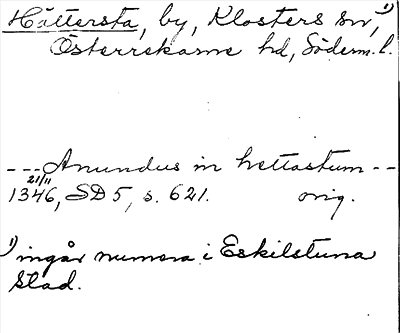 Hättersta, by, Klosters sn, 1)
Österrekarne hd, Söderm. l.
---Anundus in hettastum--
21/11
1346, SD 5, s. 621. orig.
1) ingår numera i Eskilstuna
stad.